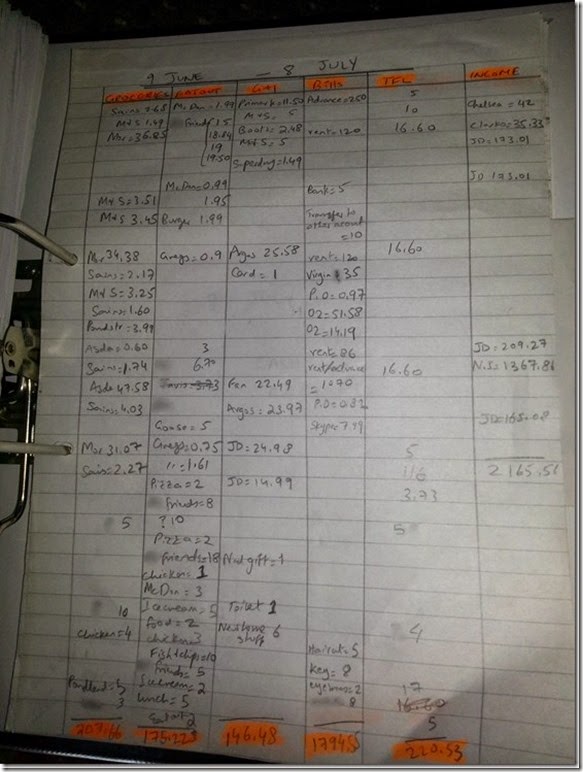 9 JUNE — 8 JULY
GROCERIES EATOUT G+1 Bills TFL INCOME
Sains=0.65 McDon=1.99 Primark=11.50 Advance=250 5
M+S 1.49 Friend 15 M+S= 5 10 Chelsea = 42
Mor=36.85 18.84 Boots=2.48 rent=120 16.60 Clarks=35.33
19 M+S = 5 JD=173.01
19.50 Superdrug=1.49
JD 173.01
McDon=0.99 Bank=5
M+S=3.51 1.95
M+S 3.45 Burger 1.99 Transfer to
other account
=10
Mor 34.38 Gregs=0.9 Argos 25.58 rent=120 16.60
Sains=2.17 Card = 1 Virgin 35
M+S=3.25 P.O=0.97
Sains=1.60 O2=51.58
Poundstr=3.99 O2=14.19
Asda=0.60 3 rent=86 JD=209.27
Sains=1.74 6.70 rent/advance 16.60 N.I=1367.86
Asda 47.58 3.73 Fen 22.49 =1070
Sains=4.03 Argos=23.97 P.O=0.82
= 5 Skype 7.19 JD=165.08
Mor 31.07 Gregs=0.75 JD=24.98 5
Sains=2.27 "=1.61 116 2165.56
Pizza=2 JD=14.99 3.73
friends=8
5 ?10 5
Pizza=2
friends=18 Nad gift=1
chicken 1
McDon = 3
10 Icecream=5 Toilet 1
Chicken=4 food=2 6 4
chicken 3 stuff
Fish+chips=10 Haircut=5
friends=5 key=8
Poundland=5 Icecream=2 eyebrows=2 17
3 lunch=5 8 16.60
Salad 2 5
207.66 175.225 146.48 1794.55 220.53